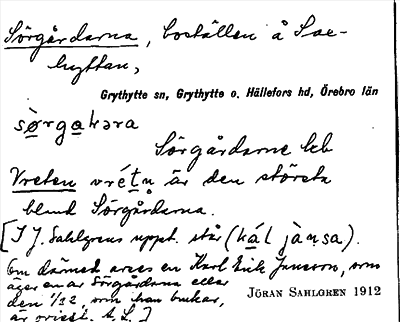 Sörgårdarna, boställen å Sax-
hyttan,
Grythytte sn, Grythytte o. Hällefors hd, Örebro län
sørgaꝁəra
Sörgårdarne bb
Vreten vrétn är den största
bland Sörgårdarna.
[I J. Sahlgrens uppt. står (kál jànsa).
Om därmed avses en Karl Erik Jansson, som
äger en av Sörgårdarna eller
den 1/32, som han brukar,
JÖRAN SAHLGREN 1912
är ovisst. A. L.]